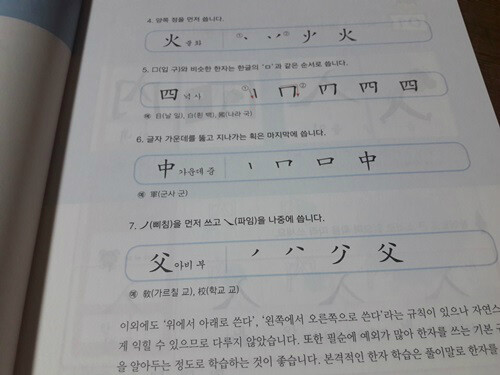 4. 양쪽 점을 먼저 씁니다.
火 불 화 ① 丶 ② 丷 少 火
5. 口(입 구)와 비슷한 한자는 한글의 'ㅁ'과 같은 순서로 씁니다.
四 넉 사 ① 丨 ② 冂 四 四
예 日(날 일), 白(흰 백), 國(나라 국)
6. 글자 가운데를 뚫고 지나가는 획은 마지막에 씁니다.
中 가운데 중 丨 冂 口 中
예 軍(군사 군)
7. 丿(삐침)을 먼저 쓰고 乀(파임)을 나중에 씁니다.
父 아비 부 丿 八 父
예 敎(가르칠 교), 校(학교 교)
이외에도 '위에서 아래로 쓴다', '왼쪽에서 오른쪽으로 쓴다'라는 규칙이 있으나 자연스
게 익힐 수 있으므로 다루지 않았습니다. 또한 필순에 예외가 많아 한자를 쓰는 기본
을 알아두는 정도로 학습하는 것이 좋습니다. 본격적인 한자 학습은 풀이말로 한자를